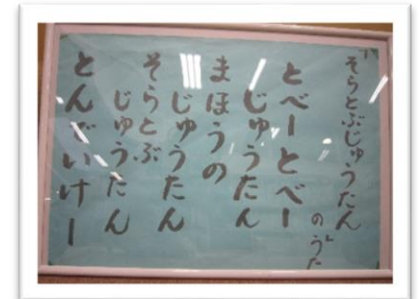 「そらとぶじゅうたん
のうた」
とべーとべー
じゅうたん
まほうの
じゅうたん
そらとぶ
じゅうたん
とんでいけー